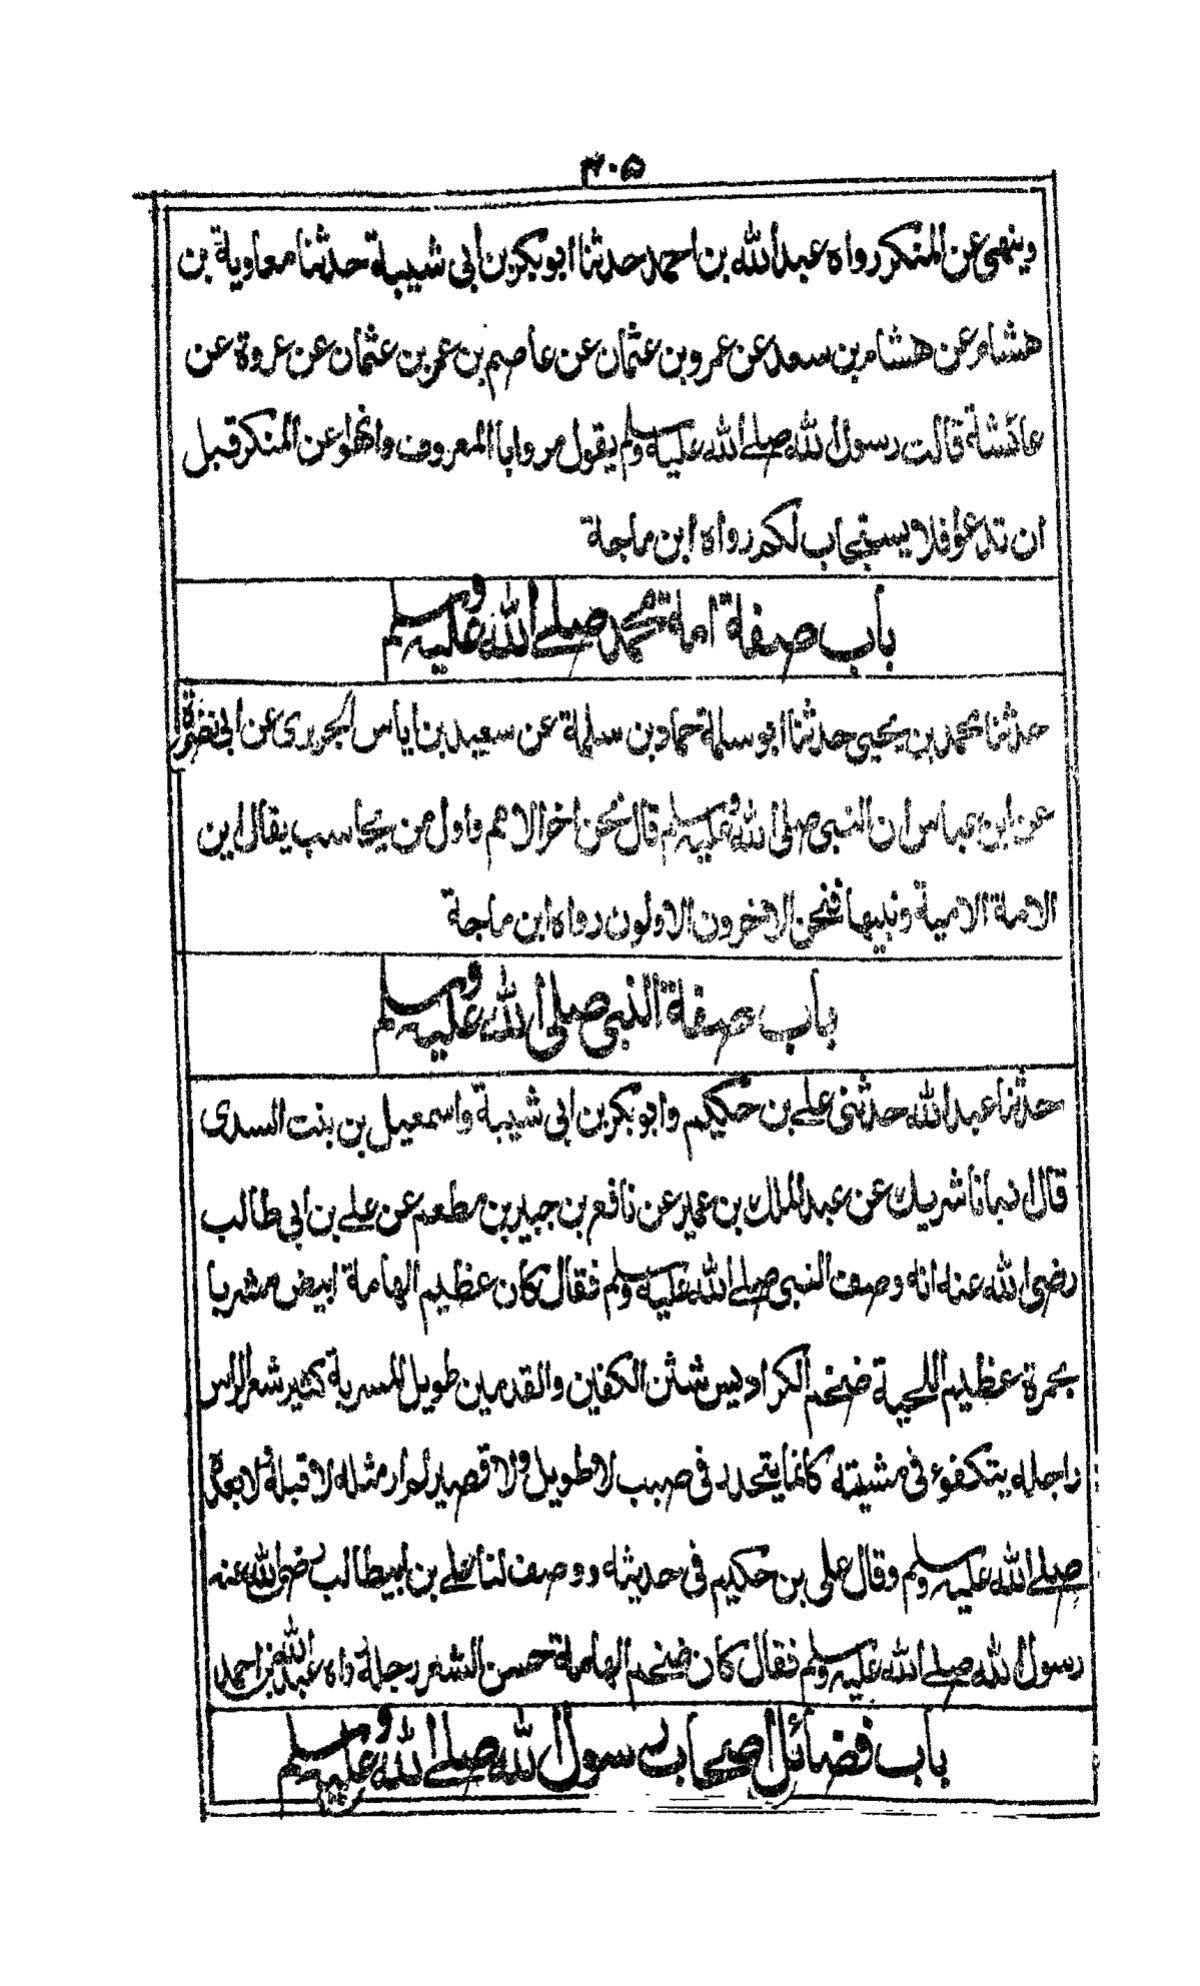 ٣٠٥
وينهى عن المنكر رواه عبد الله بن احمد حدثنا ابو بكر بن ابى شيبة حدثنا معاوية بن
هشام عن هشام بن سعد عن عمرو بن عثمان عن عاصم بن عمر بن عثمان عن عروة عن
عائشة قالت رسول الله صلے الله عليه وسلم يقول مروا بالمعروف وانهوا عن المنكر قبل
ان تدعوا فلا يستجاب لكم رواه ابن ماجة
باب صفة امة محمد صلے الله عليه وسلم
حدثنا محمد بن يحيى حدثنا ابو سلمة حماد بن سلمة عن سعيد بن اياس الجريرى عن ابى نضرة
عن ابن عباس ان النبى صلى الله عليه وسلم قال نحن اخر الامم واول من يحاسب يقال اين
الامة الامية ونبيها فنحن الاخرون الاولون رواه ابن ماجة
باب صفة النبى صلى الله عليه وسلم
حدثنا عبد الله حدثنى علے بن حكيم وابو بكر بن ابى شيبة واسمعيل بن بنت السدى
قال نبانا شريك عن عبد الملك بن عمير عن نافع بن جبير بن مطعم عن علے بن ابى طالب
رضى الله عنه انه وصف النبى صلے الله عليه وسلم فقال كان عظيم الهامة ابيض مشربا
بحمرة عظيم اللحية ضخم الكراديس شثن الكفين والقدمين طويل المسربة كثير شعر الراس
راجله يتكفؤ فى مشيته كانما يتحدر فى صبب لا طويل ولا قصير لم ار مثله لا قبله لا بعده
صلے الله عليه وسلم وقال على بن حكيم فى حديثه ووصف لنا علے بن ابيطالب رضى الله عنه
رسول الله صلے الله عليه وسلم فقال كان ضخم الهامة حسن الشعر رجله رواه عبد الله بن احمد
باب فضائل اصحاب رسول الله صلے الله عليه وسلم